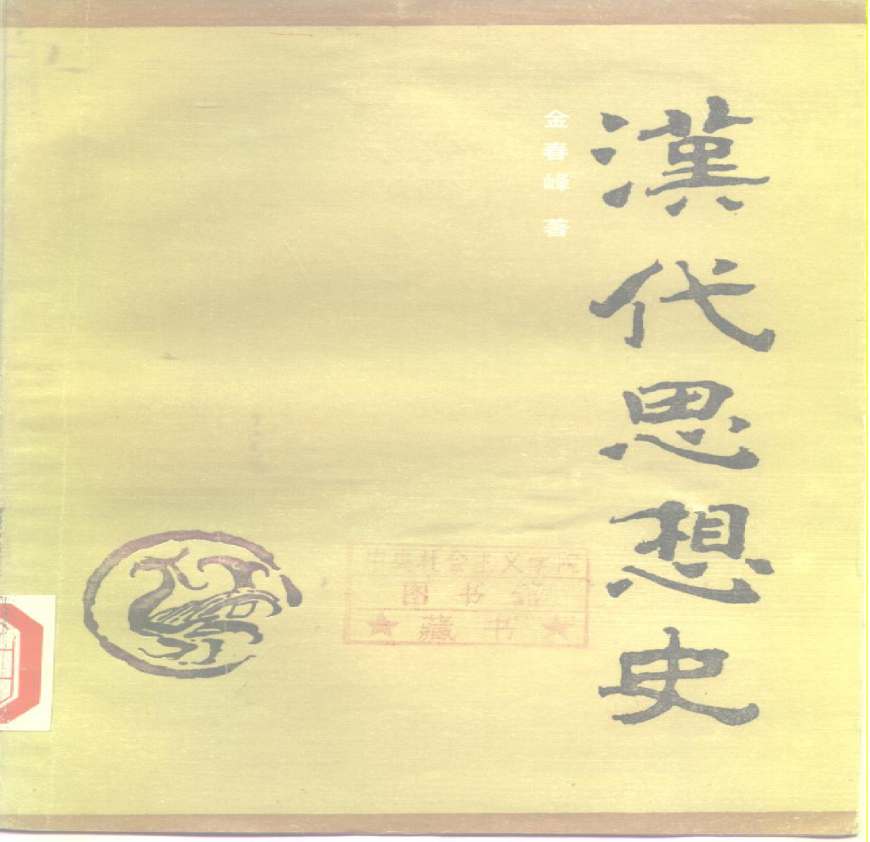 漢代思想史
金春峰 著
中央社会主义学院
图书馆
★藏书★